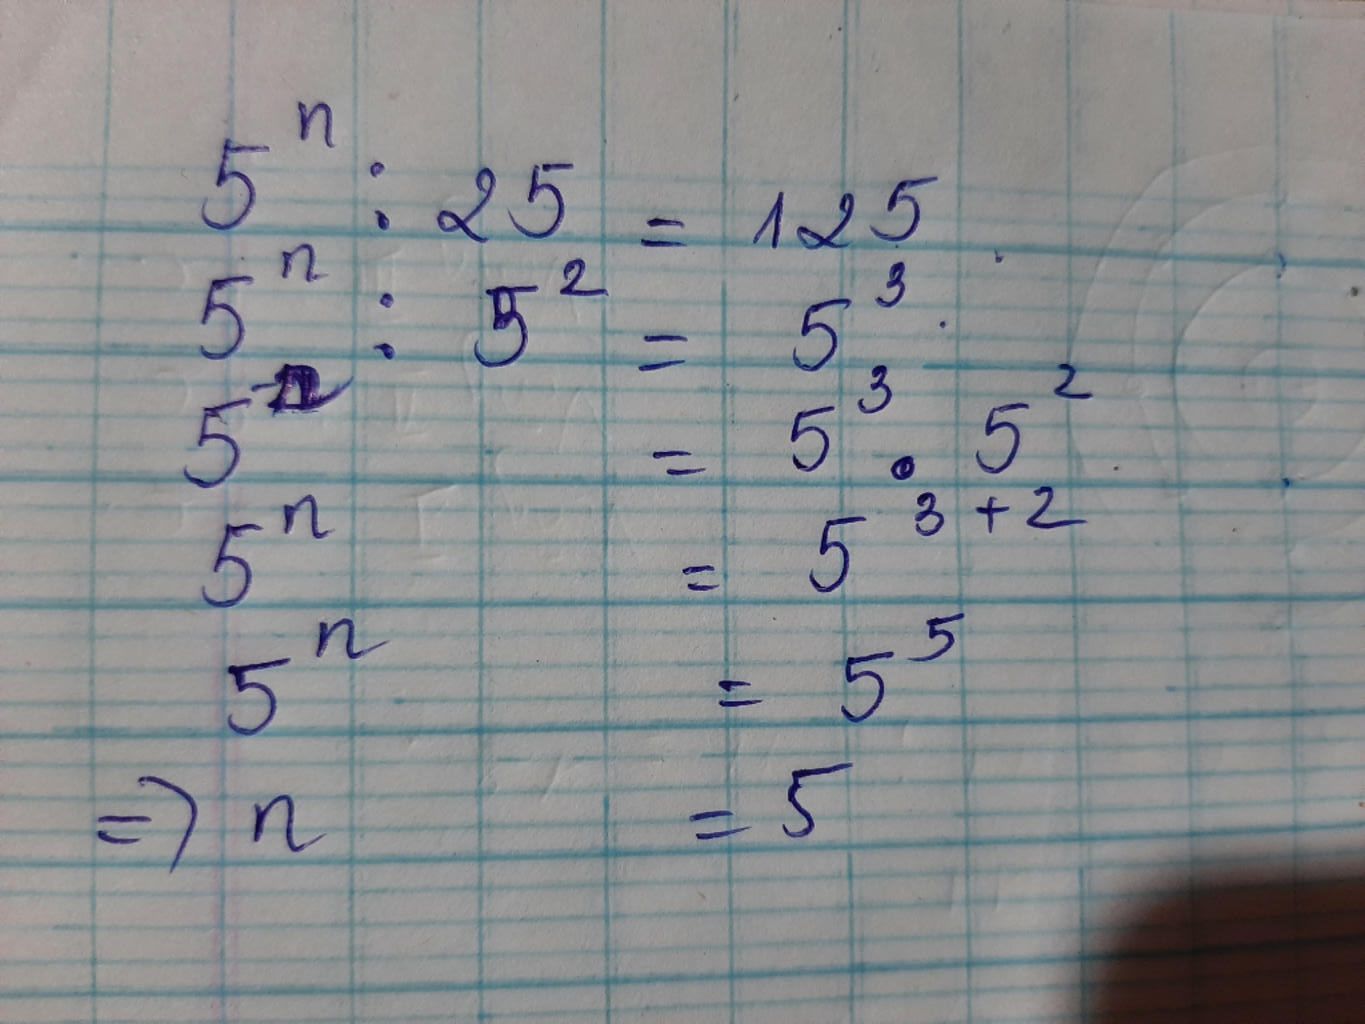 5ⁿ : 25 = 125
5ⁿ : 5² = 5³
5ⁿ = 5³ . 5²
5ⁿ = 5³⁺²
5ⁿ = 5⁵
=> n = 5